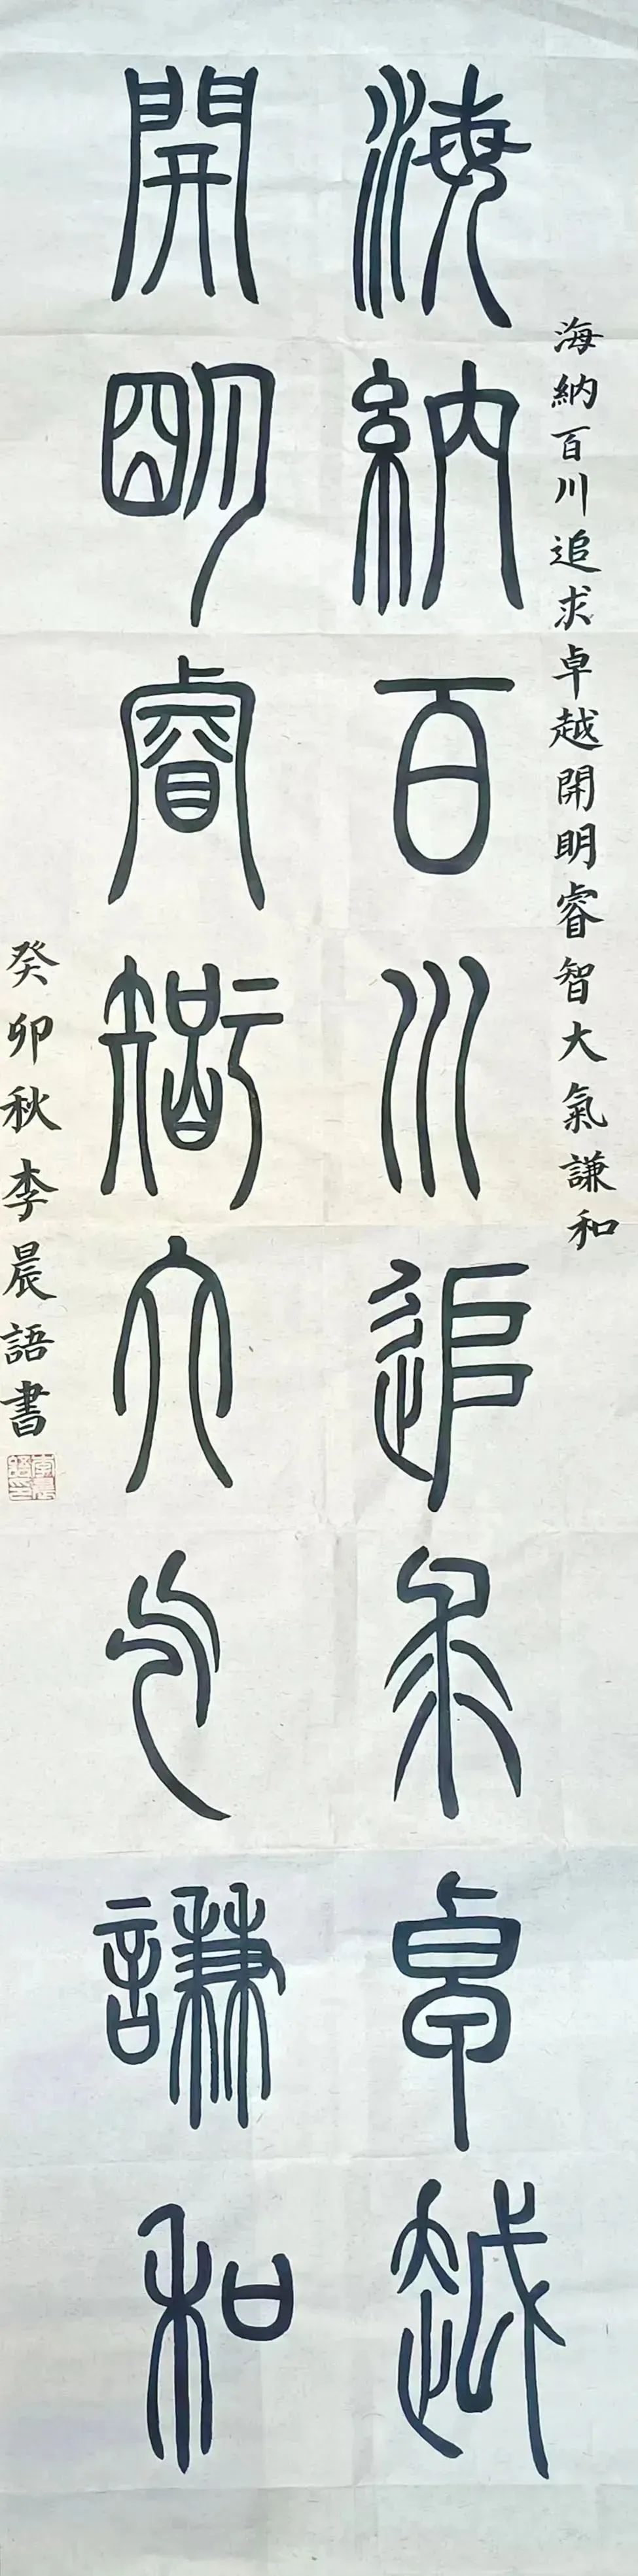 海納百川追求卓越開明睿智大氣謙和
海納百川追求卓越
開明睿智大气謙和
癸卯秋李晨語書
李晨語印